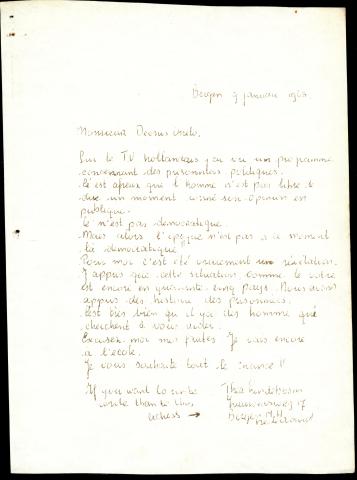 Bergen 9 januari 196
Monsieur
Sur le TV hollandais j'ai vu un programme
concernant des prisonniers politiques.
C'est afreux que l'homme n'est pas libre à
dire un moment son opinion en
publique.
Ce n'est pas democratique.
Mais alors l'Espagne n'est pas à ce moment
la democratique
Pour moi c'est été vraiment un révélation.
J'appris que cette situation comme le votre
est encore en quarante cinq pays. Nous avons
appris des histoire des prisonniers.
C'est très bien qu'il ya des homme que
cherchent à vous aider.
Excusez moi mes fautes. Je vais encore
à l'école.
Je vous souhaite tout le chance!!
If you want to write
wrote than to this
adress →
Bergen N.H.